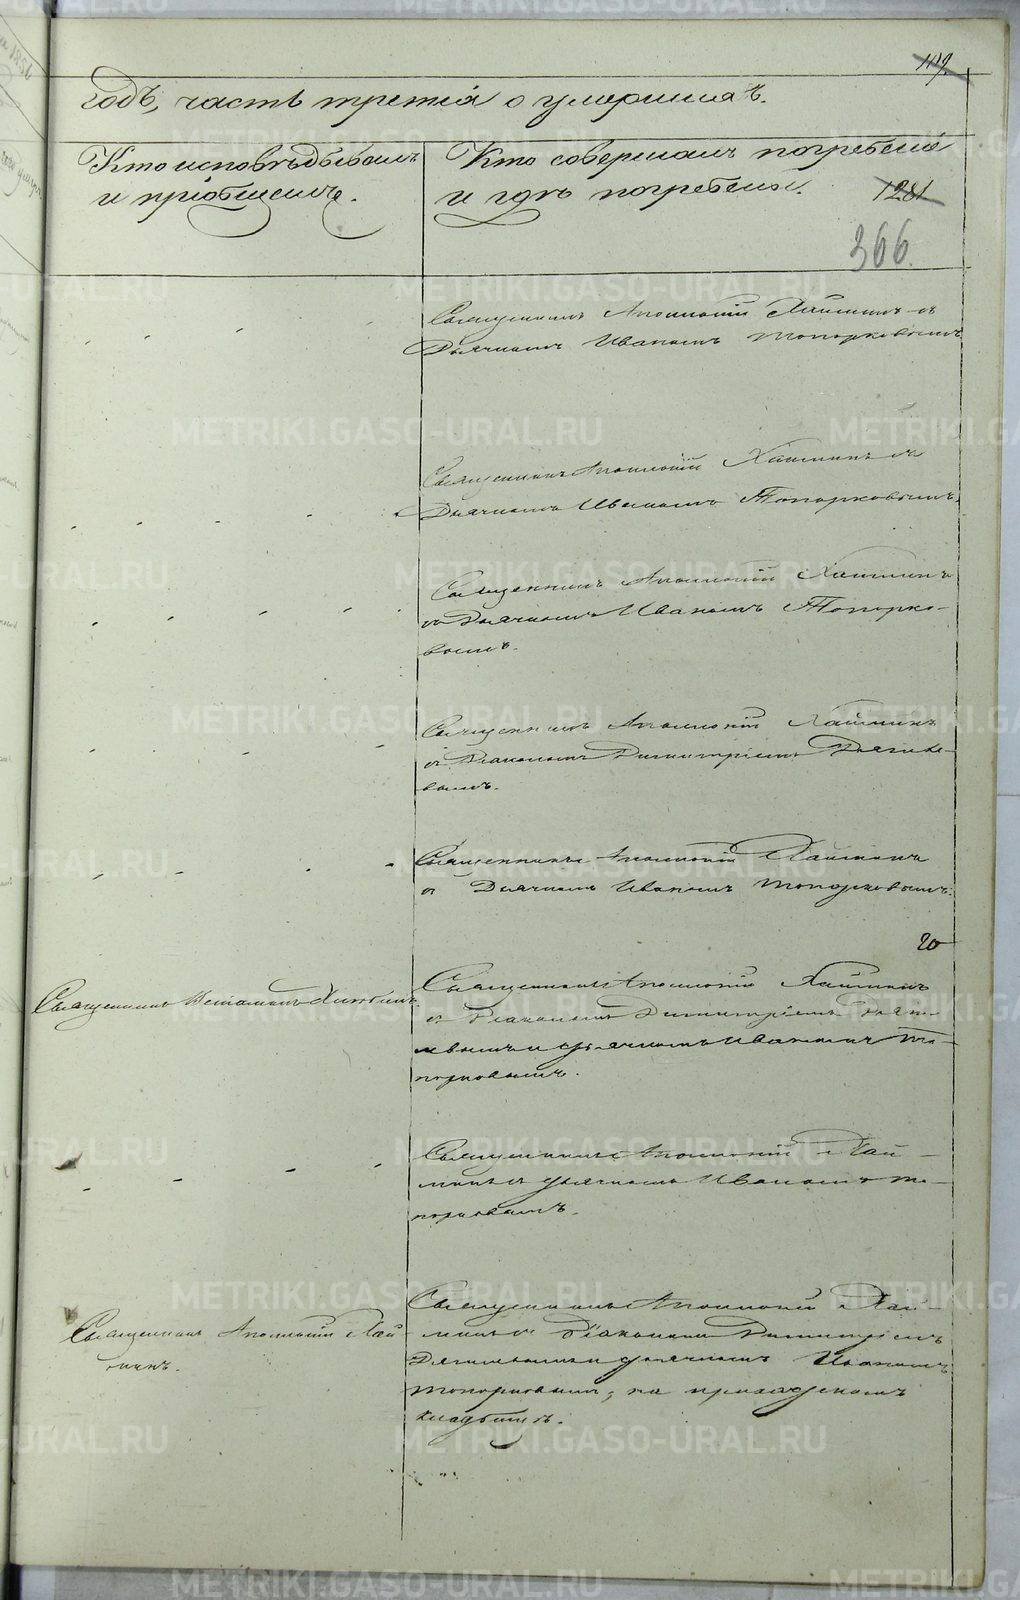 119.
годъ, часть третія о умершихъ.
Кто исповѣдывалъ
и пріобщалъ.
Кто совершалъ погребеніе
и гдѣ погребены.
1281
366.
Священникъ Аполлоній Хаймин съ
Дьячкомъ Иваномъ Топорковымъ
Священникъ Аполлоній Хайминъ съ
Дьячкомъ Иваномъ Топорковымъ,
Священникъ Аполлоній Хайминъ
съ Дьячкомъ Иваномъ Топорко-
вымъ.
Священникъ Аполлоній Хайминъ
съ Діакономъ Димитріемъ Дягиле-
вымъ.
Священникъ Аполлоній Хайминъ
съ Дьячкомъ Иваномъ Топорковымъ.
20
Священникъ
Священникъ Аполлоній Хайминъ
съ Діакономъ Димитріемъ Дяги-
левымъ и дьячкомъ Иваномъ То-
порковымъ.
Священникъ Аполлоній Хай-
минъ съ дьячкомъ Иваномъ То-
порковымъ.
Священникъ Аполлоній Хай-
минъ.
Священникъ Аполлоній Хай-
минъ съ Діакономъ Димитріемъ
Дягилевымъ и дьячкомъ Иваномъ
Топорковымъ, на приходскомъ
кладбищѣ.
METRIKI.GASO-URAL.RU